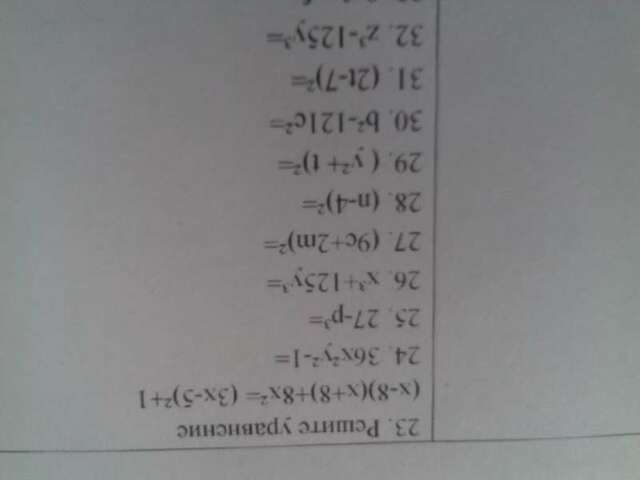 23. Решите уравнение
(x-8)(x+8)+8x²= (3x-5)²+1
24. 36x²y²-1=
25. 27-p³=
26. x³+125y³=
27. (9c+2m)²=
28. (n-4)²=
29. ( y²+ t)²=
30. b²-121c²=
31. (2t-7)²=
32. z³-125y³=